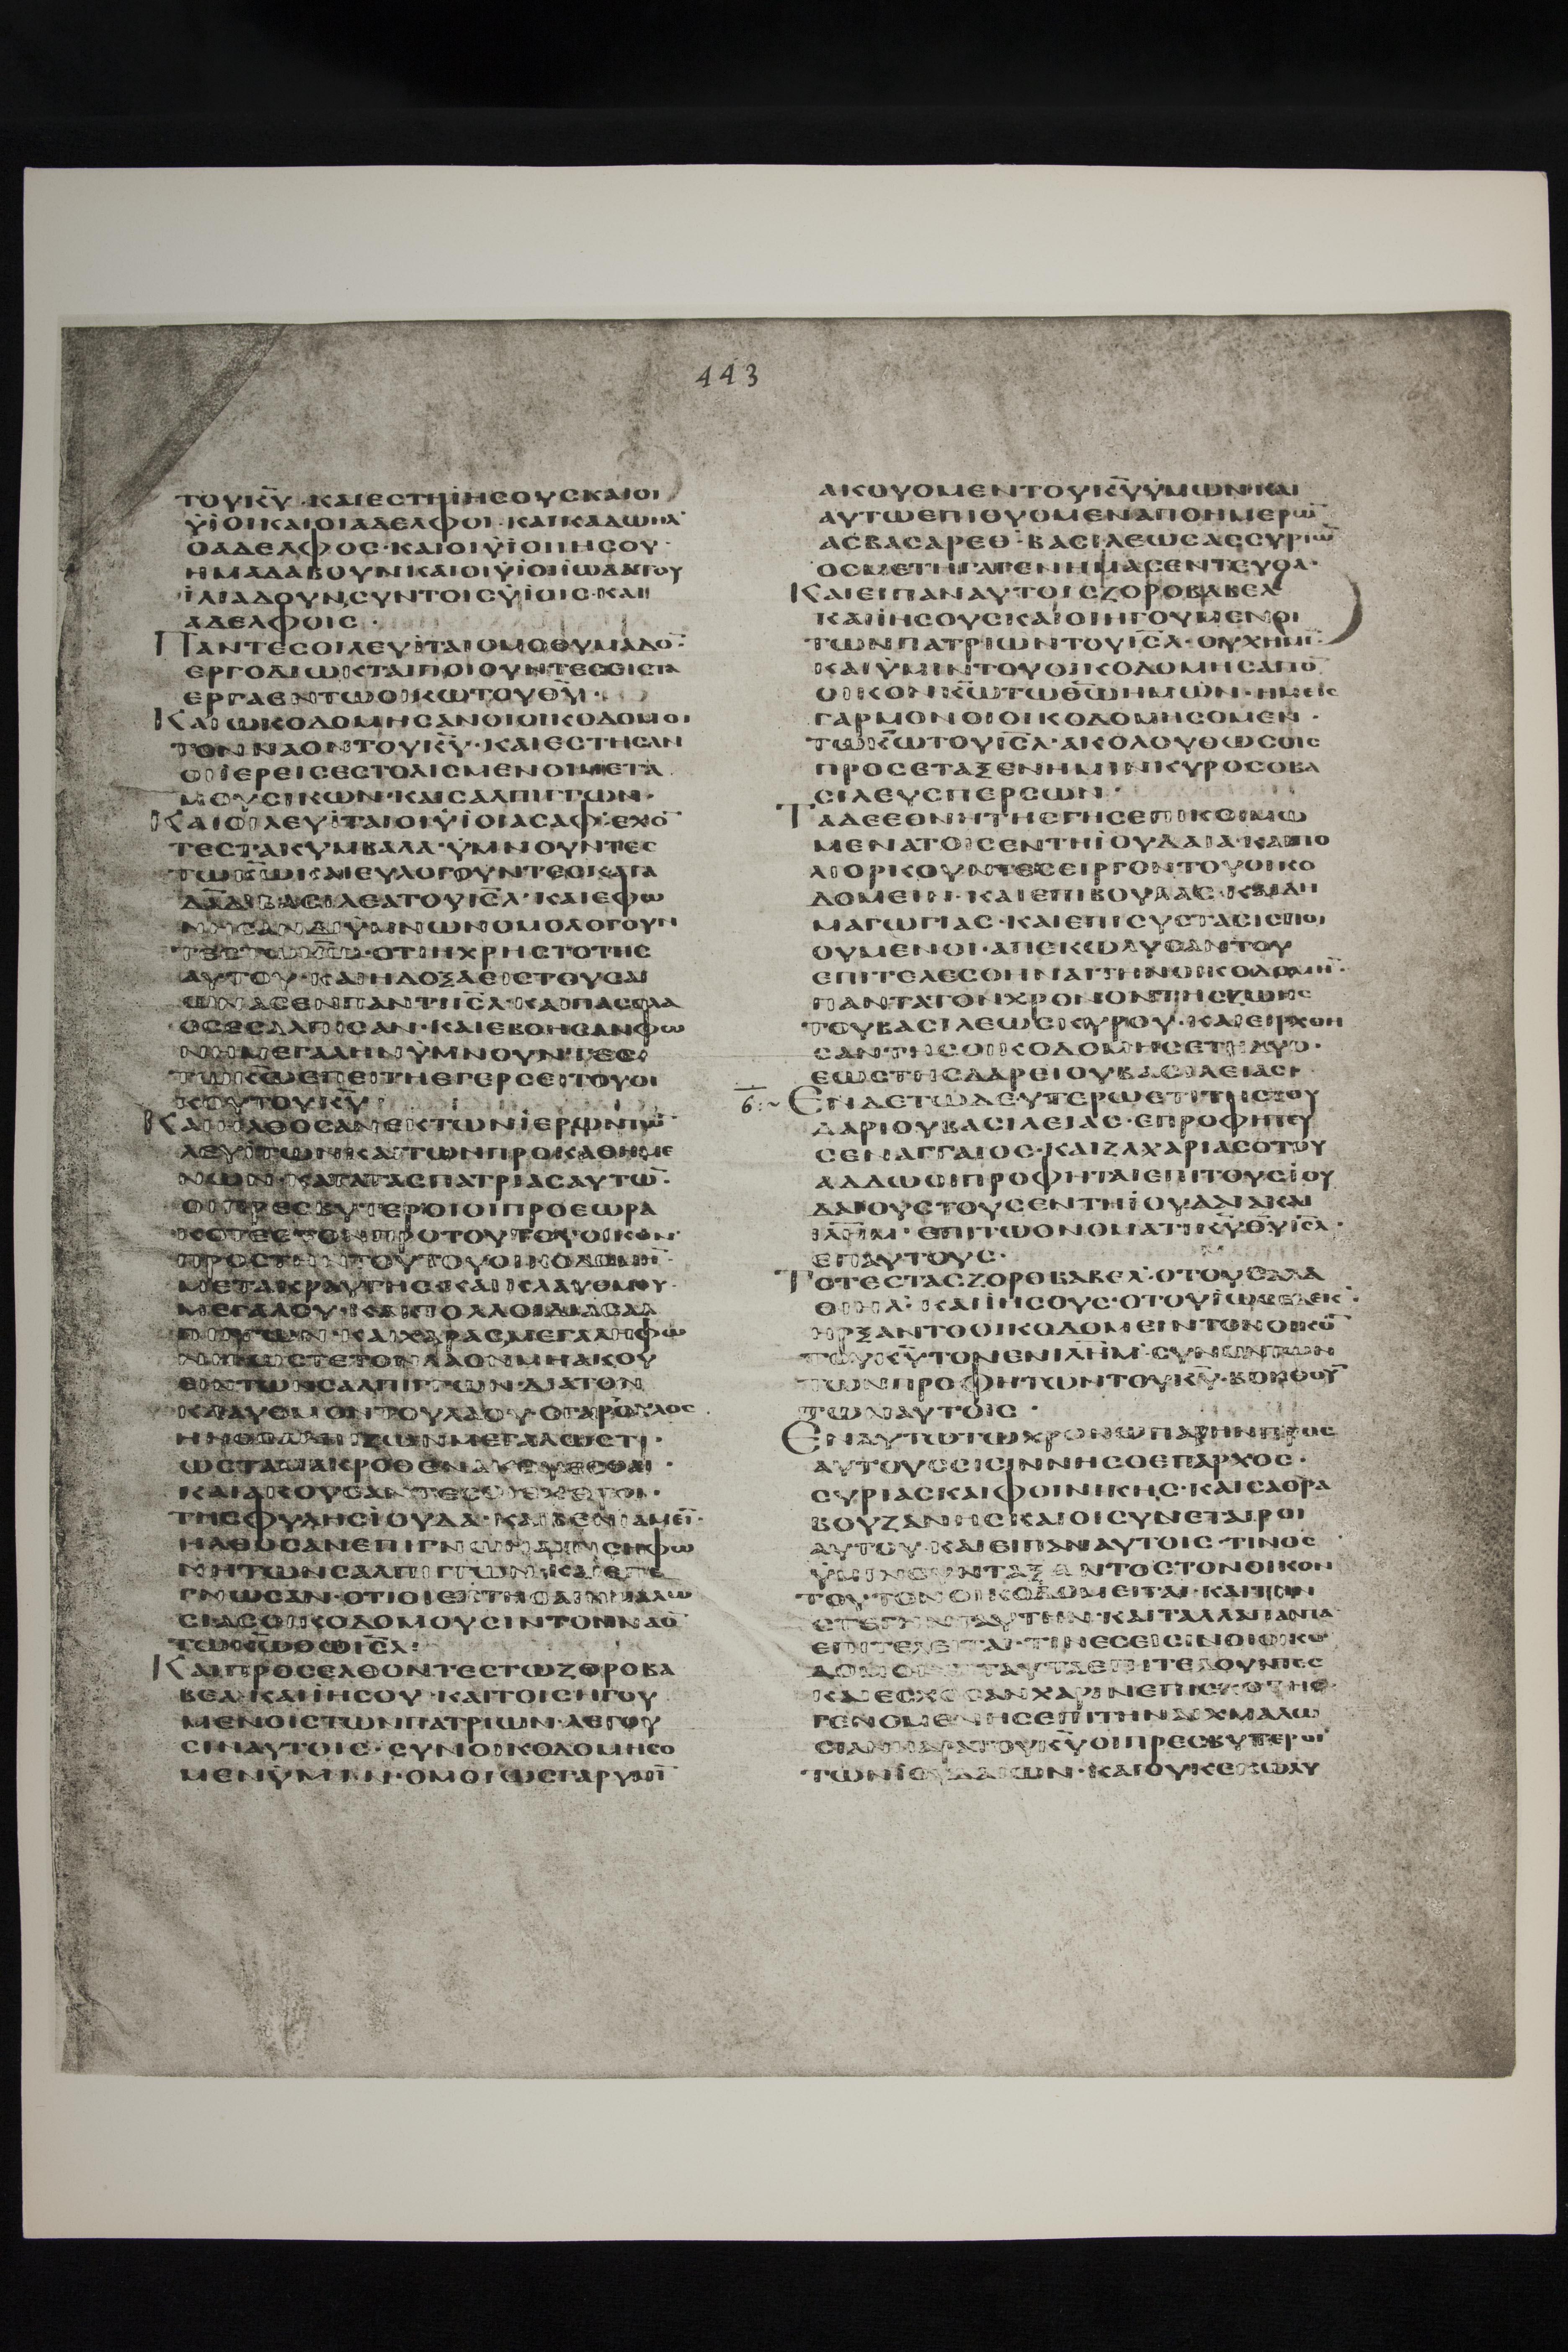 443
ΤΟΥΚΥ · ΚΑΙΕΣΤΗΪΗΣΟΥΣΚΑΙΟΙ
ΫΪΟΙΚΑΙΟΙΑΔΕΛΦΟΙ · ΚΑΙΚΑΔΩΗΛ
ΟΑΔΕΛΦΟΣ · ΚΑΙΟΙΫΪΟΙΪΗΣΟΥ
ΗΜΑΔΑΒΟΥΝΚΑΙΟΙΫΪΟΙΪΩΔΑΤΟΥ
ΪΛΙΑΔΟΥΝΣΥΝΤΟΙΣΫΪΟΙΣ · ΚΑΙ
ΑΔΕΛΦΟΙΣ ·
ΠΑΝΤΕΣΟΙΛΕΥΪΤΑΙΟΜΟΘΥΜΑΔΟ̅
ΕΡΓΟΔΙΩΚΤΑΙΠΟΙΟΥΝΤΕΣΕΙΣΤΑ
ΕΡΓΑΕΝΤΩΟΙΚΩΤΟΥΘΥ ·
ΚΑΙΩΚΟΔΟΜΗΣΑΝΟΙΟΙΚΟΔΟΜΟΙ
ΤΟΝΝΑΟΝΤΟΥΚΥ · ΚΑΙΕΣΤΗΣΑΝ
ΟΙΪΕΡΕΙΣΕΣΤΟΛΙΣΜΕΝΟΙΜΕΤΑ
ΜΟΥΣΙΚΩΝ · ΚΑΙΣΑΛΠΙΓΓΩΝ ·
ΚΑΙΟΙΛΕΥΪΤΑΙΟΙΫΪΟΙΑΣΑΦ · ΕΧΟ̅
ΤΕΣΤΑΚΥΜΒΑΛΑ · ΫΜΝΟΥΝΤΕΣ
ΤΩΚΩΚΑΙΕΥΛΟΓΟΥΝΤΕΣΚΑΤΑ
ΔΑΔΒΑΣΙΛΕΑΤΟΥΙΣΛ · ΚΑΙΕΦΩ
ΝΗΣΑΝΔΙΫΜΝΩΝΟΜΟΛΟΓΟΥΝ
ΤΕΣΤΩΚΩ · ΟΤΙΗΧΡΗΣΤΟΤΗΣ
ΑΥΤΟΥ · ΚΑΙΗΔΟΞΑΕΙΣΤΟΥΣΑΙ
ΩΝΑΣΕΝΠΑΝΤΙΙΣΛ · ΚΑΙΠΑΣΟΛΑ
ΟΣΕΣΑΛΠΙΣΑΝ · ΚΑΙΕΒΟΗΣΑΝΦΩ
ΝΗΜΕΓΑΛΗΝΫΜΝΟΥΝΤΕΣ
ΤΩΚΩΕΠΕΙΤΗΕΓΕΡΣΕΙΤΟΥΟΙ
ΚΟΥΤΟΥΚΥ
ΚΑΙΗΛΘΟΣΑΝΕΚΤΩΝΪΕΡΩΝΤΩ̅
ΛΕΥΪΤΩΝ · ΚΑΙΤΩΝΠΡΟΚΑΘΗΜΕ
ΝΩΝ · ΚΑΤΑΤΑΣΠΑΤΡΙΑΣΑΥΤΩ̅ ·
ΟΙΠΡΕΣΒΥΤΕΡΟΙΟΙΠΡΟΕΩΡΑ
ΚΟΤΕΣΤΟΝΠΡΟΤΟΥΤΟΥΟΙΚΟΝ ·
ΠΡΟΣΤΗΝΤΟΥΤΟΥΟΙΚΟΔΟΜΗ̅
ΜΕΤΑΚΡΑΥΓΗΣΚΑΙΚΛΑΥΘΜΟΥ
ΜΕΓΑΛΟΥ · ΚΑΙΠΟΛΛΟΙΔΙΑΣΑΛ
ΠΙΓΓΩΝ · ΚΑΙΧΑΡΑΣΜΕΓΑΛΗΦΩ
ΝΗΩΣΤΕΤΟΝΛΑΟΝΜΗΑΚΟΥ
ΕΙΝΤΩΝΣΑΛΠΙΓΓΩΝ · ΔΙΑΤΟΝ
ΚΛΑΥΘΜΟΝΤΟΥΛΑΟΥ · ΟΓΑΡΟΧΛΟΣ
ΗΝΟΣΑΛΠΙΖΩΝΜΕΓΑΛΩΣΤΙ ·
ΩΣΤΑΙΜΑΚΡΟΘΕΝΑΚΟΥΕΣΘΑΙ ·
ΚΑΙΑΚΟΥΣΑΝΤΕΣΟΙΕΧΘΡΟΙ ·
ΤΗΣΦΥΛΗΣΪΟΥΔΑ · ΚΑΙΒΕΝΙΑΜΕΙ̅ ·
ΗΛΘΟΣΑΝΕΠΙΓΝΩΝΑΙΤΙΣΗΦΩ
ΝΗΤΩΝΣΑΛΠΙΓΓΩΝ · ΚΑΙΕΠΕ
ΓΝΩΣΑΝ · ΟΤΙΟΙΕΚΤΗΣΑΙΧΜΑΛΩ
ΣΙΑΣΟΙΚΟΔΟΜΟΥΣΙΝΤΟΝΝΑΟ̅
ΤΩΚΩΘΩΙΣΛ ·
ΚΑΙΠΡΟΣΕΛΘΟΝΤΕΣΤΩΖΟΡΟΒΑ
ΒΕΛ · ΚΑΙΪΗΣΟΥ · ΚΑΙΤΟΙΣΗΓΟΥ
ΜΕΝΟΙΣΤΩΝΠΑΤΡΙΩΝ · ΛΕΓΟΥ
ΣΙΝΑΥΤΟΙΣ · ΣΥΝΟΙΚΟΔΟΜΗΣΟ
ΜΕΝΫΜΙΝ · ΟΜΟΙΩΣΓΑΡΥΜΙ̅
ΑΚΟΥΟΜΕΝΤΟΥΚΥΫΜΩΝ · ΚΑΙ
ΑΥΤΩΕΠΙΘΥΟΜΕΝΑΠΟΗΜΕΡΩ̅
ΑΣΒΑΣΑΡΕΘ · ΒΑΣΙΛΕΩΣΑΣΣΥΡΙΩ̅
ΟΣΜΕΤΗΓΑΓΕΝΗΜΑΣΕΝΤΕΥΘΑ ·
ΚΑΙΕΙΠΑΝΑΥΤΟΙΣΖΟΡΟΒΑΒΕΛ
ΚΑΙΪΗΣΟΥΣΚΑΙΟΙΗΓΟΥΜΕΝΟΙ
ΤΩΝΠΑΤΡΙΩΝΤΟΥΙΣΛ · ΟΥΧΗΜΙ̅
ΚΑΙΫΜΙΝΤΟΥΟΙΚΟΔΟΜΗΣΑΙΤΟ̅
ΟΙΚΟΝΚΩΤΩΘΩΗΜΩΝ · ΗΜΕΙΣ
ΓΑΡΜΟΝΟΙΟΙΚΟΔΟΜΗΣΟΜΕΝ ·
ΤΩΚΩΤΟΥΙΣΛ · ΑΚΟΛΟΥΘΩΣΟΙΣ
ΠΡΟΣΕΤΑΞΕΝΗΜΙΝΚΥΡΟΣΟΒΑ
ΣΙΛΕΥΣΠΕΡΣΩΝ ·
ΤΑΔΕΕΘΝΗΤΗΣΓΗΣΕΠΙΚΟΙΜΩ
ΜΕΝΑΤΟΙΣΕΝΤΗΪΟΥΔΑΙΑ · ΚΑΙΠΟ
ΛΙΟΡΚΟΥΝΤΕΣΕΙΡΓΟΝΤΟΥΟΙΚΟ
ΔΟΜΕΙΝ · ΚΑΙΕΠΙΒΟΥΛΑΣ · ΚΑΙΔΗ
ΜΑΓΩΓΙΑΣ · ΚΑΙΕΠΙΣΥΣΤΑΣΙΣΠΟΙ
ΟΥΜΕΝΟΙ · ΑΠΕΚΩΛΥΣΑΝΤΟΥ
ΕΠΙΤΕΛΕΣΘΗΝΑΙΤΗΝΟΙΚΟΔΟΜΗ̅ ·
ΠΑΝΤΑΤΟΝΧΡΟΝΟΝΤΗΣΖΩΗΣ
ΤΟΥΒΑΣΙΛΕΩΣΚΥΡΟΥ · ΚΑΙΕΙΡΧΘΗ
ΣΑΝΤΗΣΟΙΚΟΔΟΜΗΣΕΤΗΔΥΟ ·
ΕΩΣΤΗΣΔΑΡΕΙΟΥΒΑΣΙΛΕΙΑΣ ·
6 :~ ΕΝΔΕΤΩΔΕΥΤΕΡΩΕΤΙΤΗΣΤΟΥ
ΔΑΡΙΟΥΒΑΣΙΛΕΙΑΣ · ΕΠΡΟΦΗΤΕΥ
ΣΕΝΑΓΓΑΙΟΣ · ΚΑΙΖΑΧΑΡΙΑΣΟΤΟΥ
ΑΔΔΩΟΙΠΡΟΦΗΤΑΙΕΠΙΤΟΥΣΪΟΥ
ΔΑΙΟΥΣΤΟΥΣΕΝΤΗΪΟΥΔΑΙΑΚΑΙ
ΙΛΗΜ · ΕΠΙΤΩΟΝΟΜΑΤΙΚΥΘΥΙΣΛ ·
ΕΠΑΥΤΟΥΣ ·
ΤΟΤΕΣΤΑΣΖΟΡΟΒΑΒΕΛ · ΟΤΟΥΣΑΛΑ
ΘΙΗΛ · ΚΑΙΪΗΣΟΥΣ · ΟΤΟΥΪΩΣΕΔΕΚ ·
ΗΡΞΑΝΤΟΟΙΚΟΔΟΜΕΙΝΤΟΝΟΙΚΟ̅
ΤΟΥΚΥΤΟΝΕΝΙΛΗΜ · ΣΥΝΟΝΤΩΝ
ΤΩΝΠΡΟΦΗΤΩΝΤΟΥΚΥ · ΒΟΗΘΟΥ̅
ΤΩΝΑΥΤΟΙΣ ·
ΕΝΑΥΤΩΤΩΧΡΟΝΩΠΑΡΗΝΠΡΟΣ
ΑΥΤΟΥΣΣΙΣΙΝΝΗΣΟΕΠΑΡΧΟΣ ·
ΣΥΡΙΑΣΚΑΙΦΟΙΝΙΚΗΣ · ΚΑΙΣΑΘΡΑ
ΒΟΥΖΑΝΗΣΚΑΙΟΙΣΥΝΕΤΑΙΡΟΙ
ΑΥΤΟΥ · ΚΑΙΕΙΠΑΝΑΥΤΟΙΣ · ΤΙΝΟΣ
ΫΜΙΝΣΥΝΤΑΞΑΝΤΟΣΤΟΝΟΙΚΟΝ
ΤΟΥΤΟΝΟΙΚΟΔΟΜΕΙΤΑΙ · ΚΑΙΤΗΝ
ΣΤΕΓΗΝΤΑΥΤΗΝ · ΚΑΙΤΑΛΛΑΠΑΝΤΑ
ΕΠΙΤΕΛΕΙΤΑΙ · ΤΙΝΕΣΕΙΣΙΝΟΙΟΙΚΟ
ΔΟΜΟΙΟΙΤΑΥΤΑΕΠΙΤΕΛΟΥΝΤΕΣ
ΚΑΙΕΣΧΟΣΑΝΧΑΡΙΝΕΠΙΣΚΟΠΗΣ
ΓΕΝΟΜΕΝΗΣΕΠΙΤΗΝΑΙΧΜΑΛΩ
ΣΙΑΝΠΑΡΑΤΟΥΚΥΟΙΠΡΕΣΒΥΤΕΡΟΙ
ΤΩΝΪΟΥΔΑΙΩΝ · ΚΑΙΟΥΚΕΚΩΛΥ